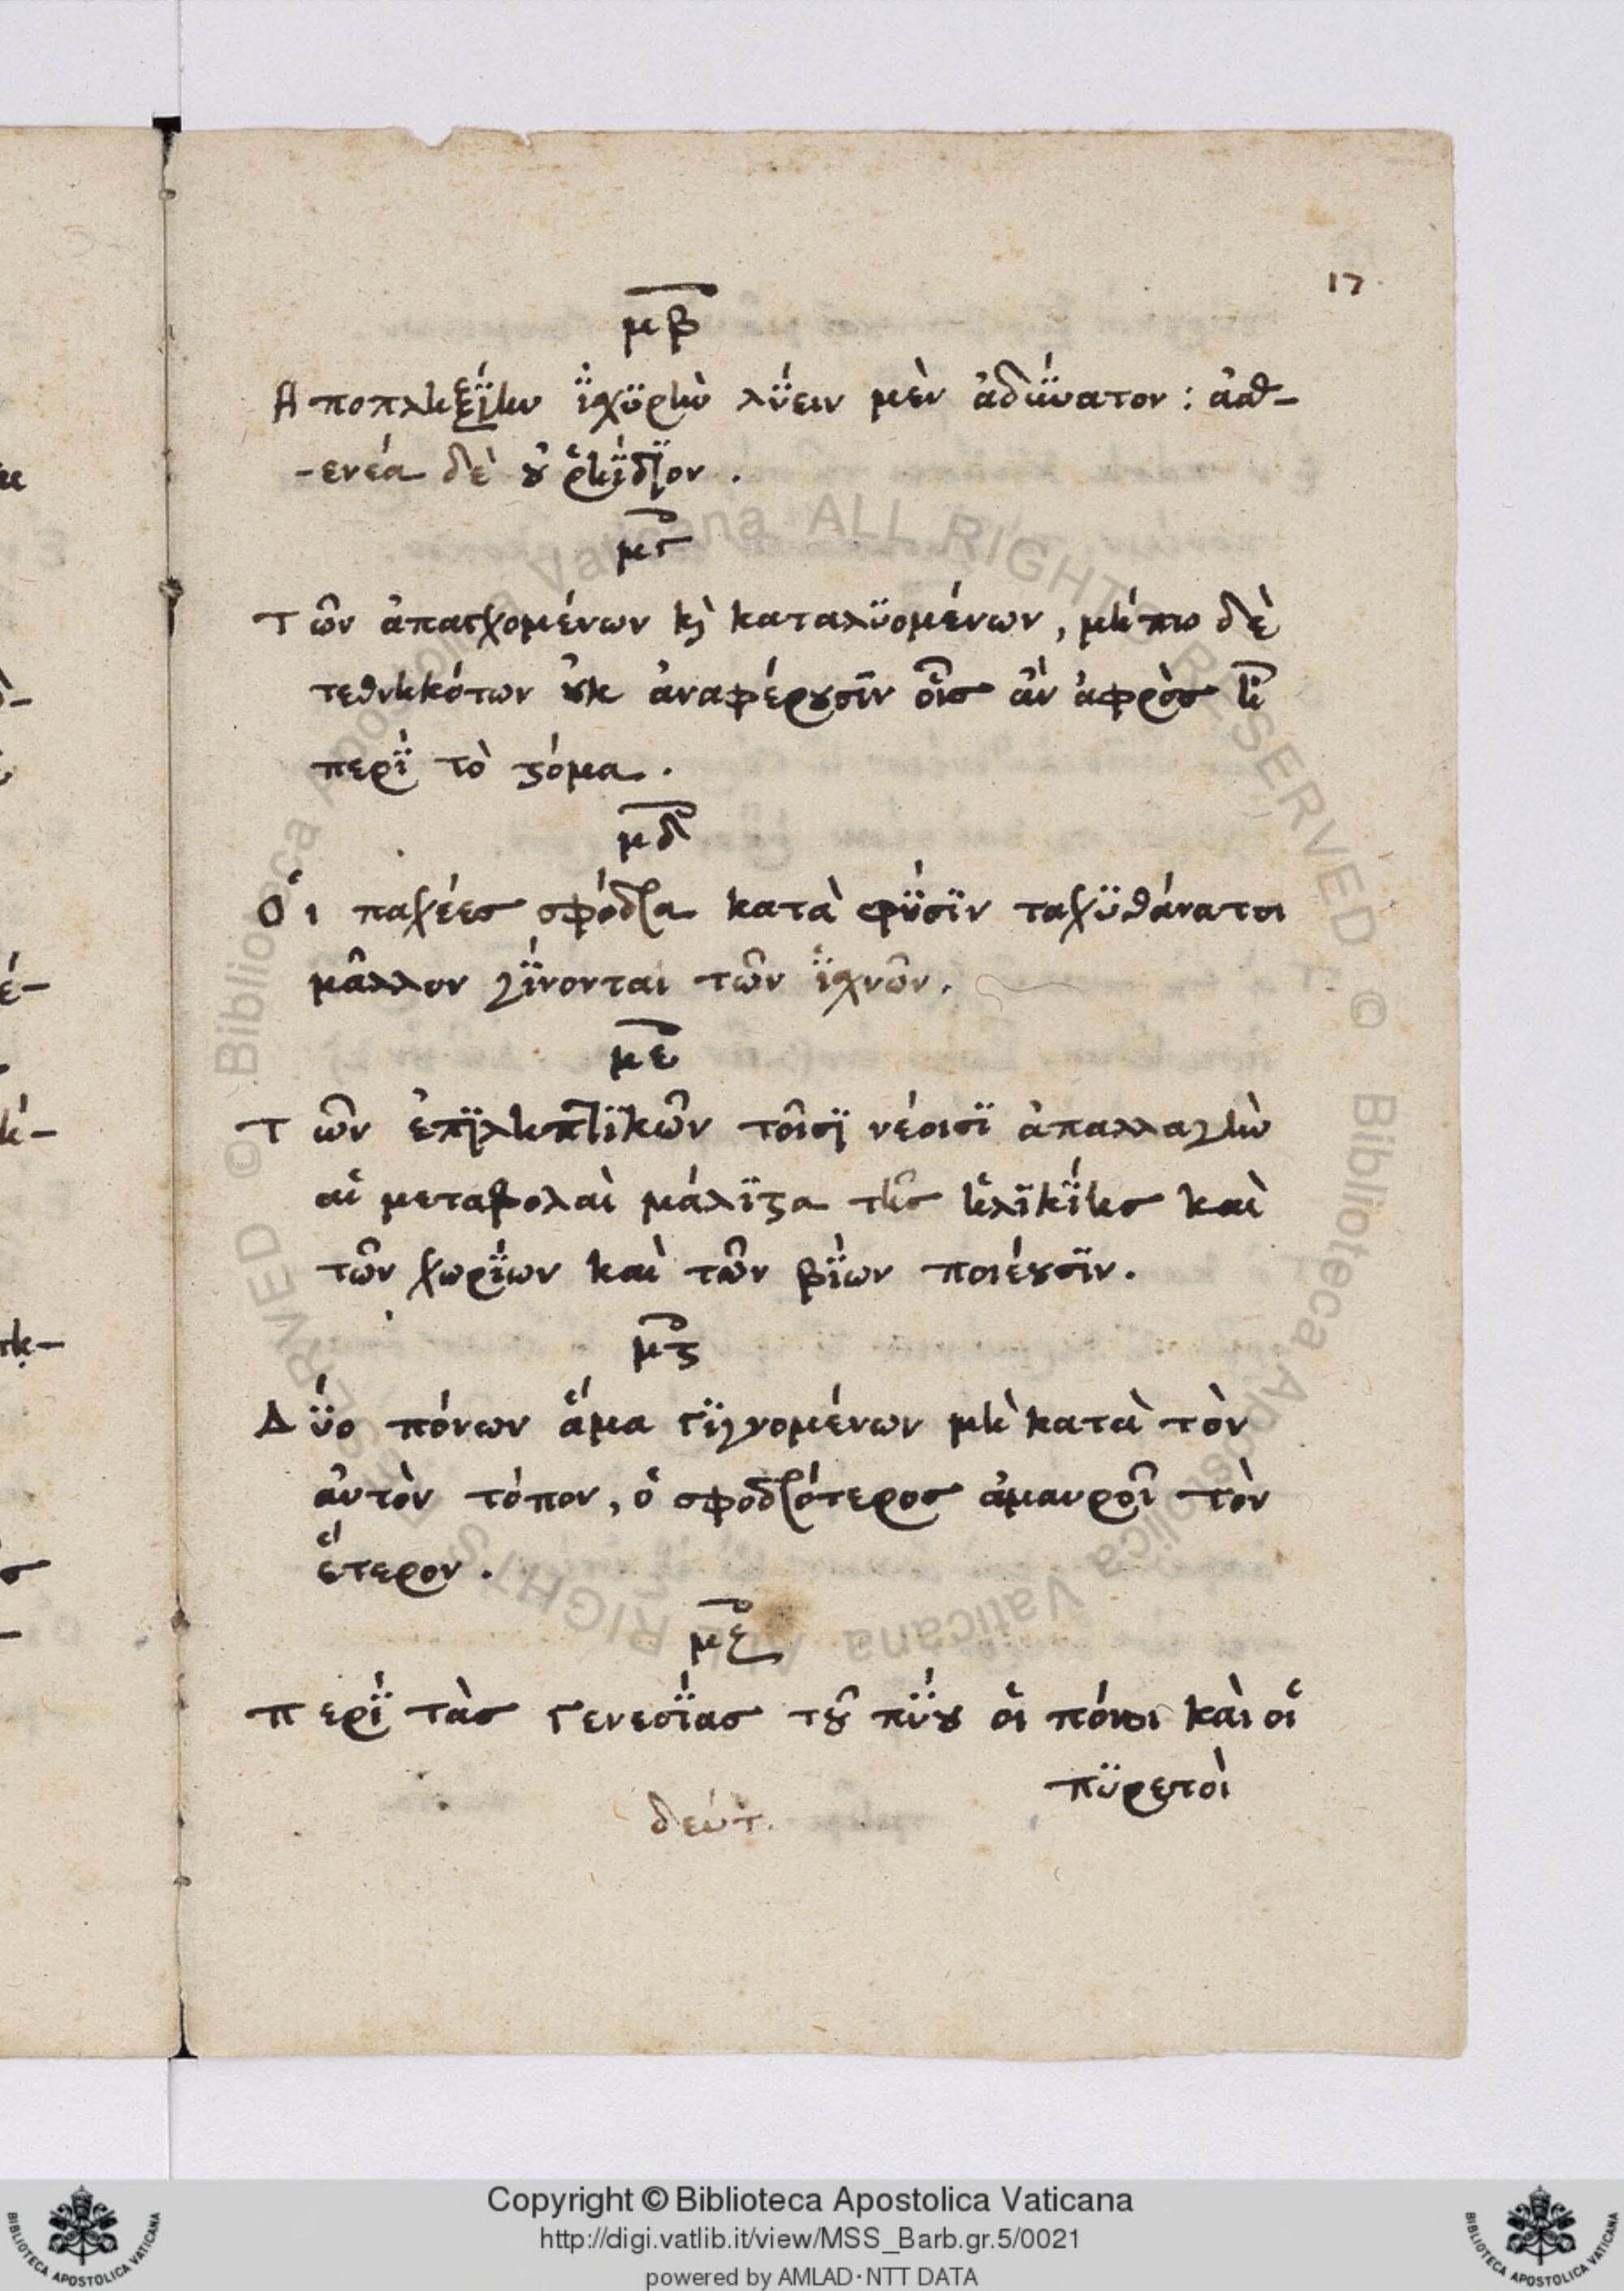 17
μβ
Αποπληξΐην ἰχϋρὴν λΰειν μὲν ἀδΰνατον : ἀσθ-
-ενέα δὲ ȣ̓ ῥηΐδϊον .
μγ
Τῶν ἀπαγχομένων κ̀ καταλϋομένων, μήπω δὲ
τεθνηκότων ȣ̓κ ἀναφέρȣσϊν οἷς ἂν ἀφρὸς ῇ
περῒ τὸ ϛόμα .
μδ
Οἱ παχέες σφόδρα κατὰ φΰσϊν ταχϋθάνατοι
μᾶλλον γΐνονται τῶν ἰχνῶν.
με
Τῶν ἐπϊληπτϊκῶν τοῖσϊ νέοισϊ ἀπαλλαγὴν
αἱ μεταβολαὶ μάλϊϛα τῆς ἡλϊκΐης καὶ
τῶν χωρΐων καὶ τῶν βΐων ποιέȣσϊν.
μϛ
Δΰο πόνων ἅμα γϊγνομένων μὴ κατὰ τὸν
αὐτὸν τόπον, ὁ σφοδρότερος ἀμαυροῖ τὸν
ἕτερον .
μζ
περῒ τὰς γενεσΐας τȣ͂ πΰȣ οἱ πόνοι καὶ οἱ
πϋρετοὶ
δεύτ.
Copyright © Biblioteca Apostolica Vaticana
http://digi.vatlib.it/view/MSS_Barb.gr.5/0021
powered by AMLAD·NTT DATA